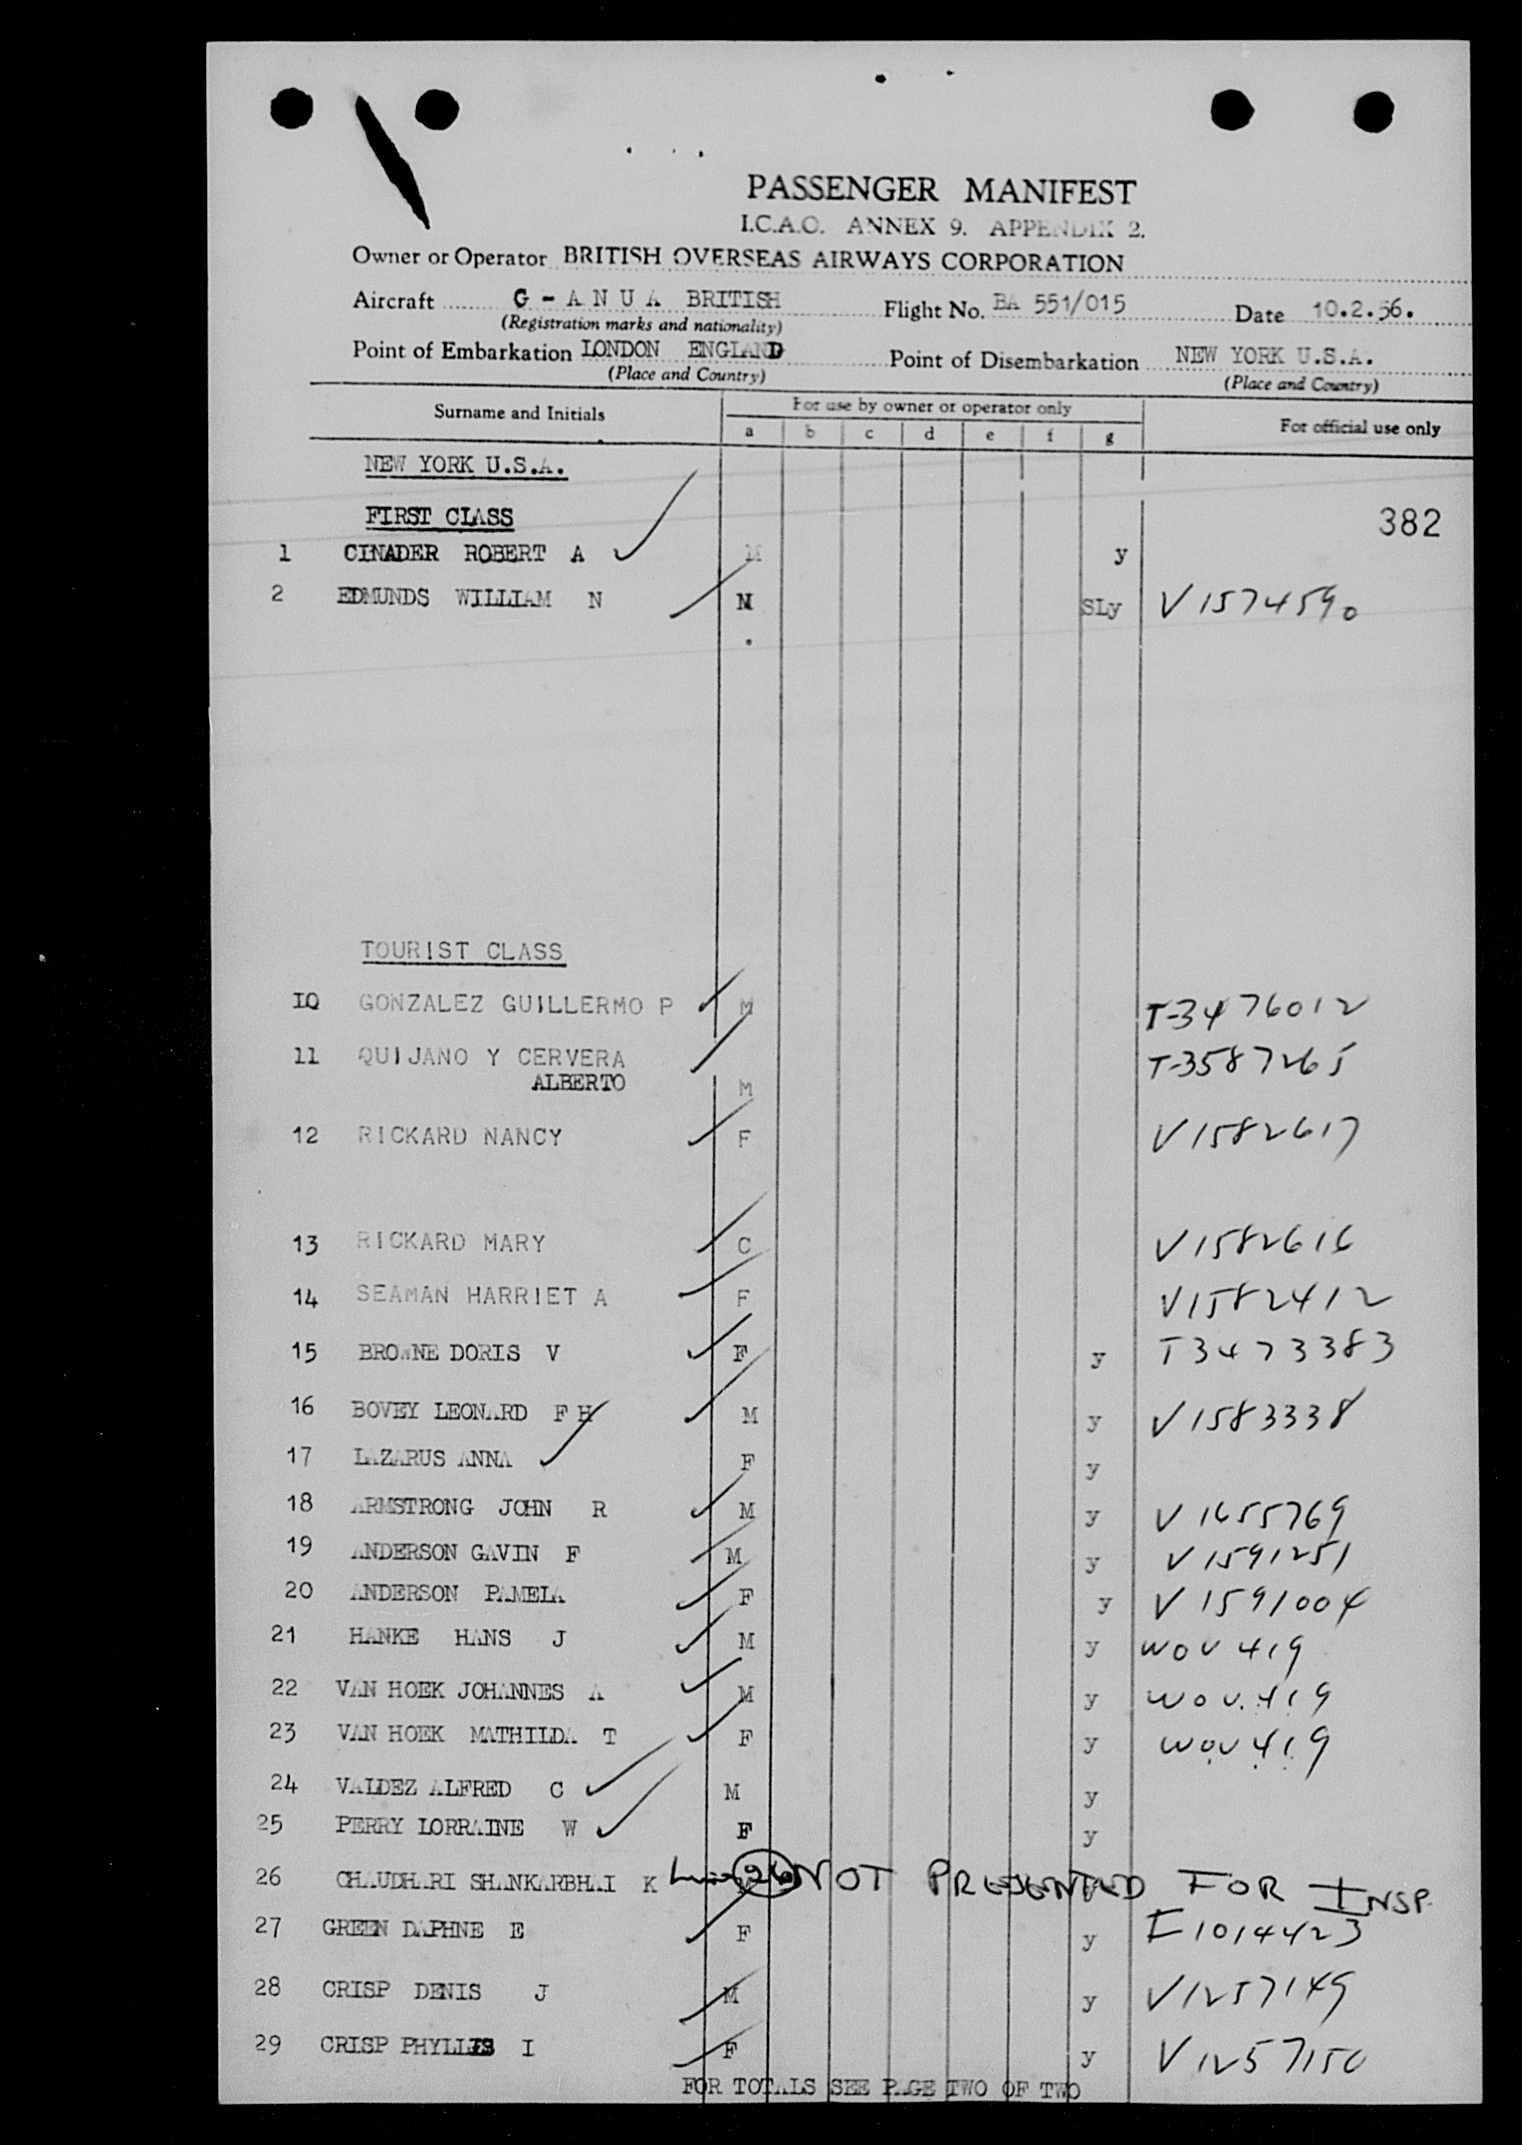 PASSENGER MANIFEST
I.C.A.O. ANNEX 9. APPENDIX 2.
Owner or Operator BRITISH OVERSEAS AIRWAYS CORPORATION
Aircraft G - A N U A BRITISH Flight No. BA 551/015 Date 10.2.56.
(Registration marks and nationality)
Point of Embarkation LONDON ENGLAND Point of Disembarkation NEW YORK U.S.A.
(Place and Country) (Place and Country)
Surname and Initials For use by owner or operator only For official use only
a b c d e f g
NEW YORK U.S.A.
FIRST CLASS 382
1 CINADER ROBERT A M y
2 EDMUNDS WILLIAM N M SLy V1574590
TOURIST CLASS
10 GONZALEZ GUILLERMO P M T-3476012
11 QUIJANO Y CERVERA T-3587265
ALBERTO M
12 RICKARD NANCY F V1582617
13 RICKARD MARY C V1582616
14 SEAMAN HARRIET A F V1582412
15 BROWNE DORIS V F y T3473383
16 BOVEY LEONARD F H M y V1583338
17 LAZARUS ANNA F y
18 ARMSTRONG JOHN R M y V1655769
19 ANDERSON GAVIN F M y V1591251
20 ANDERSON PAMELA F y V1591004
21 HANKE HANS J M y WOV 419
22 VAN HOEK JOHANNES A M y WOV. 419
23 VAN HOEK MATHILDA T F y WOV 419
24 VALDEZ ALFRED C M y
25 PERRY LORRAINE W F y
26 CHAUDHARI SHANKARBHAI K M Line 26 NOT PRESENTED FOR INSP.
27 GREEN DAPHNE E F y I-1014423
28 CRISP DENIS J M y V1257149
29 CRISP PHYLLIS I F y V1257150
FOR TOTALS SEE PAGE TWO OF TWO